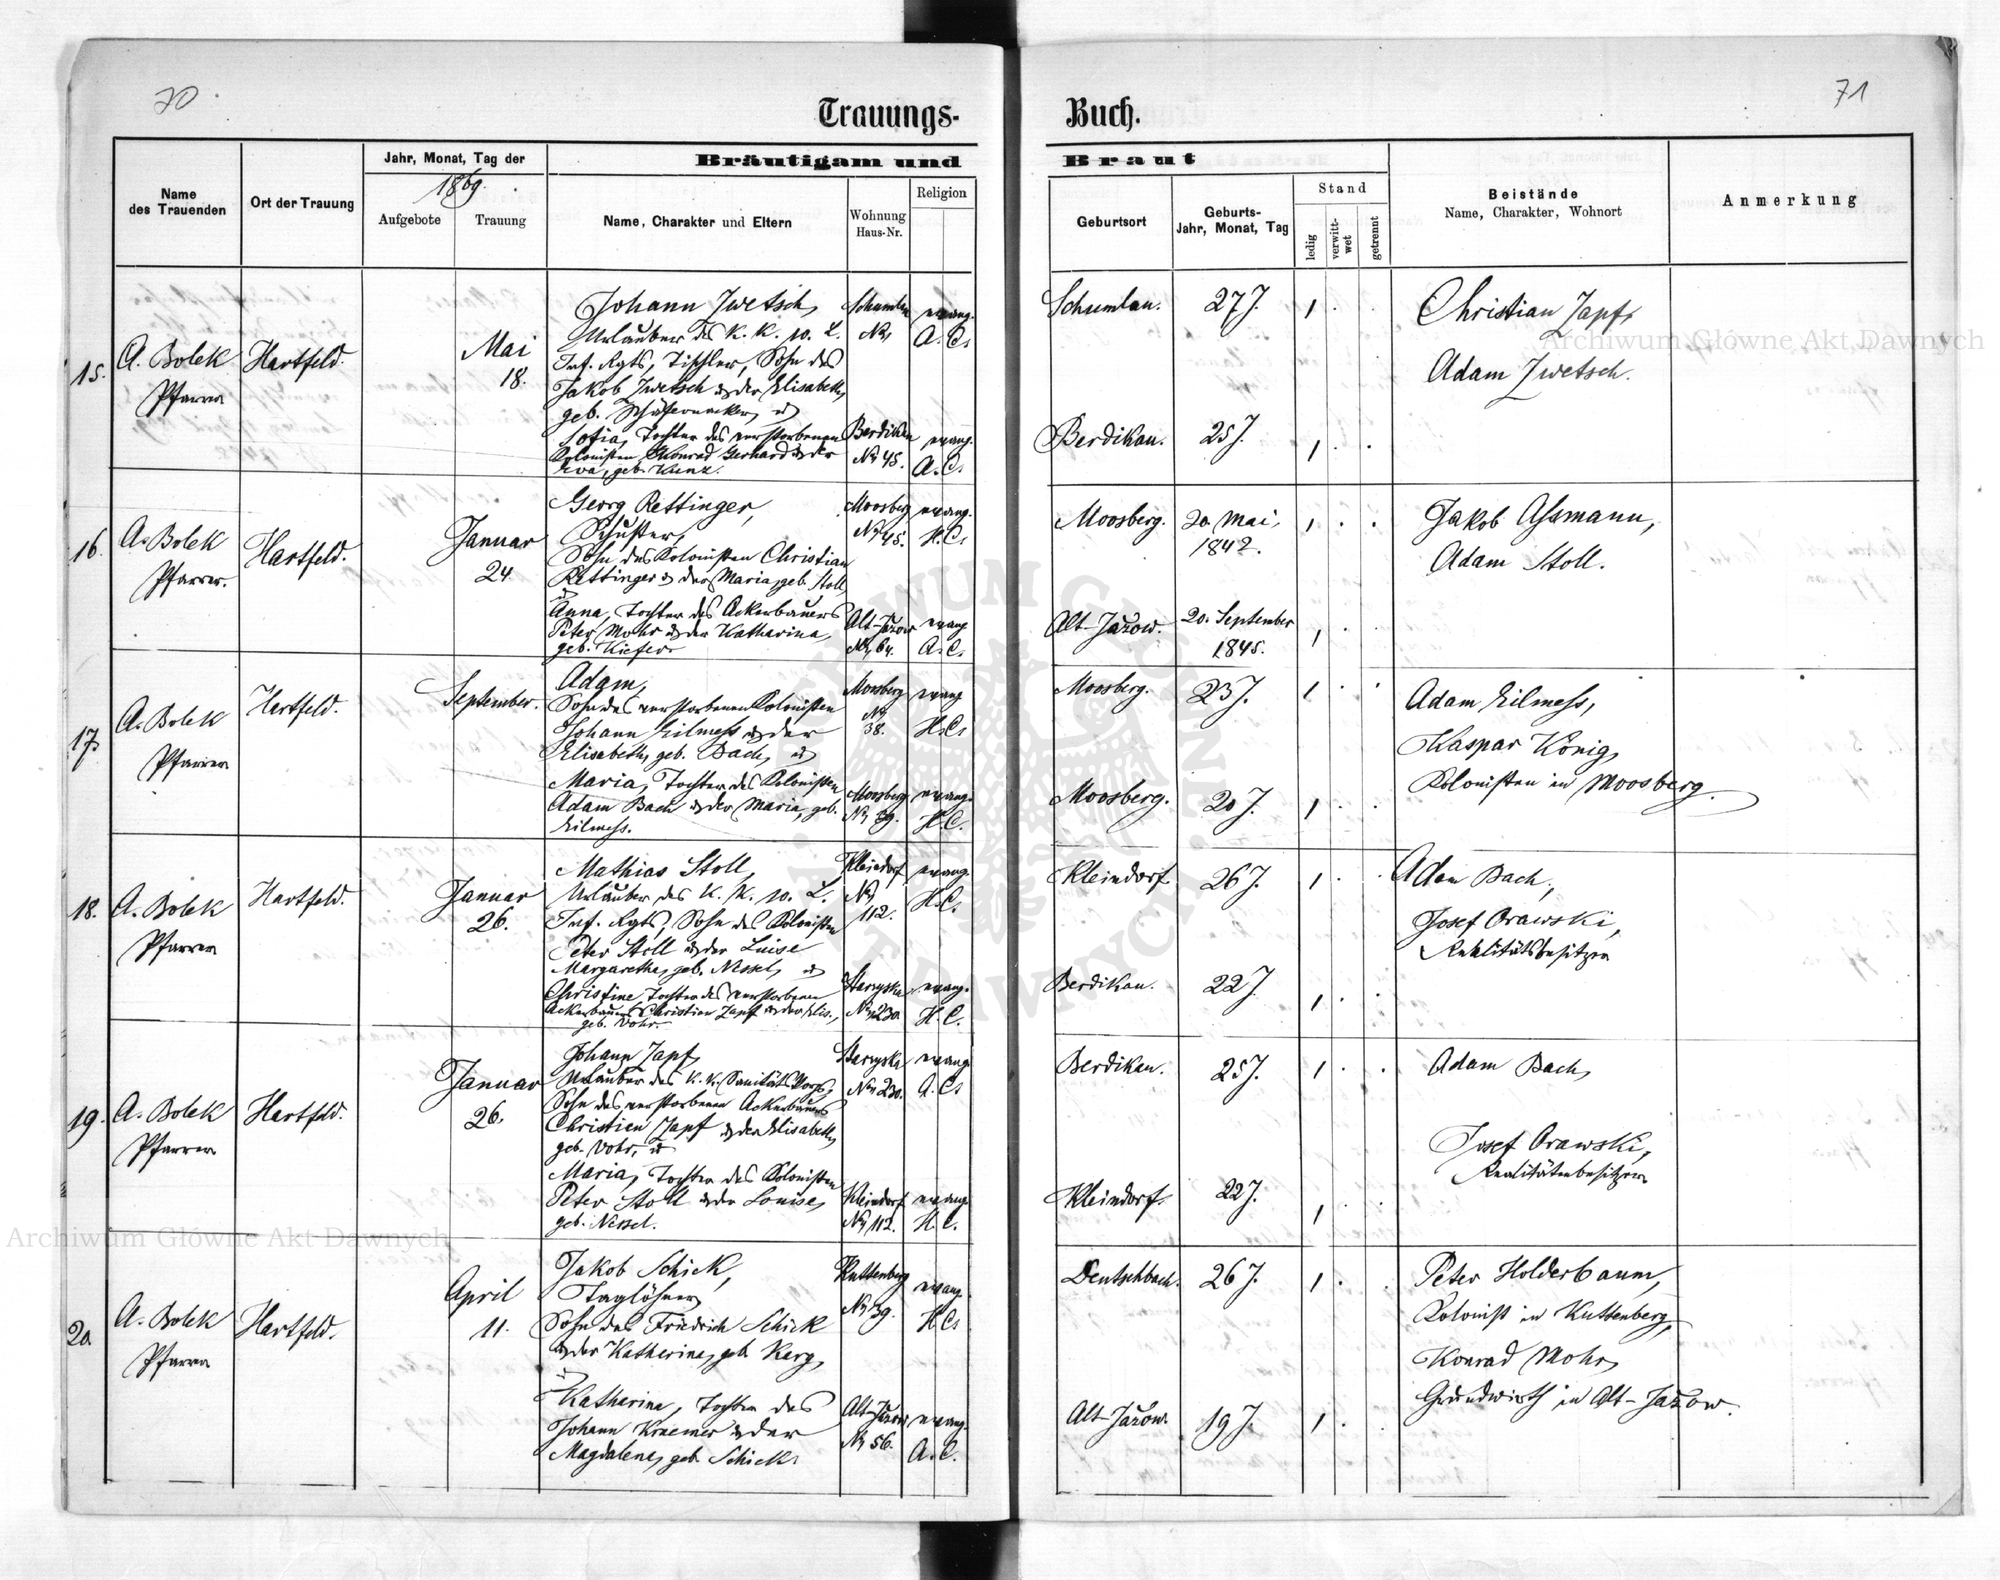 70.
71
Trauungs-
Buch.
Bräutigam und
Braut
Name
des Trauenden
Ort der Trauung
Jahr, Monat, Tag der
1869.
Aufgebote
Trauung
Name, Charakter und Eltern
Wohnung
Haus-Nr.
Religion
Geburtsort
Geburts-
Jahr, Monat, Tag
Stand
ledig
verwitt-
wet
getrennt
Beistände
Name, Charakter, Wohnort
Anmerkung
15.
A. Bolek
Pfarrer
Hartfeld.
Mai
18.
Johann Zwetsch,
Urlauber des K. K. 10. L.
Inf. Rgts, Tischler, Sohn des
Jakob Zwetsch & der Elisabeth,
geb. Schäfernacker, u
Sofia, Tochter des verstorbenen
Kolonisten Konrad Gerhard & der
Eva, geb. Kunz.
Schumlau
No 1
Berdikau
No 45.
evang.
A. C.
evang.
A. C.
Schumlau.
27 J.
1 . .
Berdikau.
25 J.
1 . .
Christian Zapf,
Adam Zwetsch.
16.
A. Bolek
Pfarrer.
Hartfeld.
Januar
24
Georg Rettinger,
Schuster,
Sohn des Kolonisten Christian
Rettinger & der Maria, geb. Stoll,
u
Anna, Tochter des Ackerbauers
Peter Mohr & der Katharina,
geb. Kiefer.
Moosberg
No 45.
Alt-Jazow
No 64.
evang.
H. C.
evang
A. C.
Moosberg.
20 Mai,
1842.
1 . .
Alt-Jazow.
20. September
1845.
1 . .
Jakob Assmann,
Adam Stoll.
17.
A. Bolek
Pfarrer
Hartfeld.
September.
Adam,
Sohn des verstorbenen Kolonisten
Johann Eilmess & der
Elisabeth, geb. Bach, u
Maria, Tochter des Kolonisten
Adam Bach & der Maria, geb.
Eilmess.
Moosberg
No
38.
Moosberg
No 39.
evang
H. C.
evang.
H. C.
Moosberg.
23 J.
1 . .
Moosberg.
20 J.
1 . .
Adam Eilmess,
Kaspar König,
Kolonisten in Moosberg.
18.
A. Bolek
Pfarrer
Hartfeld.
Januar
26.
Mathias Stoll,
Urlauber des K. K. 10. L.
Inf. Rgts, Sohn des Kolonisten
Peter Stoll & der Luise
Margaretha, geb. Nessel, u
Christine, Tochter des verstorbenen
Ackerbauers Christian Zapf & der Elis.,
geb. Vohr.
Kleindorf
No
112.
Starzyska
No 230.
evang.
H. C.
evang.
H. C.
Kleindorf
26 J.
1 . .
Berdikau.
22 J.
1 . .
Adam Bach,
Josef Orawski,
Realitätsbesitzer
19.
A. Bolek
Pfarrer
Hartfeld.
Januar
26.
Johann Zapf,
Urlauber des K. K. Sanitäts Korps,
Sohn des verstorbenen Ackerbauers
Christian Zapf & der Elisabeth,
geb. Vohr, u
Maria, Tochter des Kolonisten
Peter Stoll & der Louise,
geb. Nessel.
Starzyska
No 230.
Kleindorf
No 112.
evang
A. C.
evang.
H. C.
Berdikau.
25 J.
1 . .
Kleindorf.
22 J.
1 . .
Adam Bach,
Josef Orawski,
Realitätenbesitzer
20.
A. Bolek
Pfarrer
Hartfeld.
April
11.
Jakob Schick,
Taglöhner
Sohn des Friedrich Schick
& der Katharina, geb. Karg,
u
Katharina, Tochter des
Johann Kraemer & der
Magdalena, geb. Schick.
Kuttenberg
No 39.
Alt-Jazow
No 56.
evang.
H. C.
evang.
A. C.
Deutschbach.
26 J.
1 . .
Alt-Jazow.
19 J.
1 . .
Peter Holderbaum,
Kolonist in Kuttenberg,
Konrad Mohr,
Grundwirth in Alt-Jazow.
Archiwum Główne Akt Dawnych
Archiwum Główne Akt Dawnych
ARCHIWUM GŁÓWNE AKT DAWNYCH